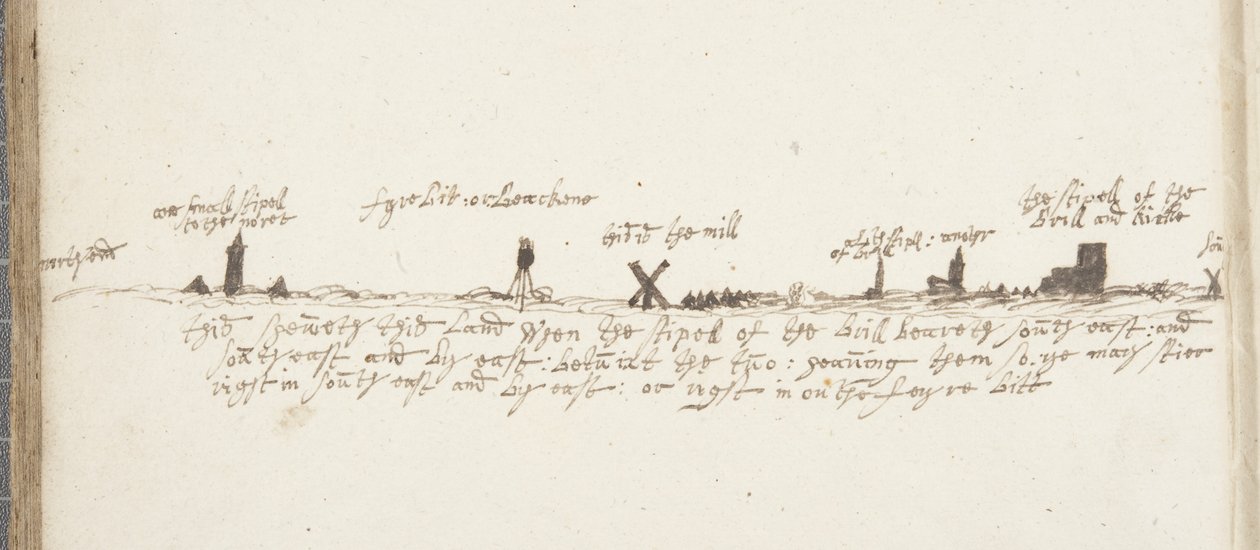 one small stipel
to the noret
fyre Bit: or Beackene
this is the mill
stipel: anotyr
of Brill
the stipell of the
Brill and kirke
north end
Sou
this sheweth this Land When the stipell of the Brill beareth south east: and
south east and By east: betwixt the two: heaving them so. ye may stier
right in south east and By east: or right in on the feyre Bitt